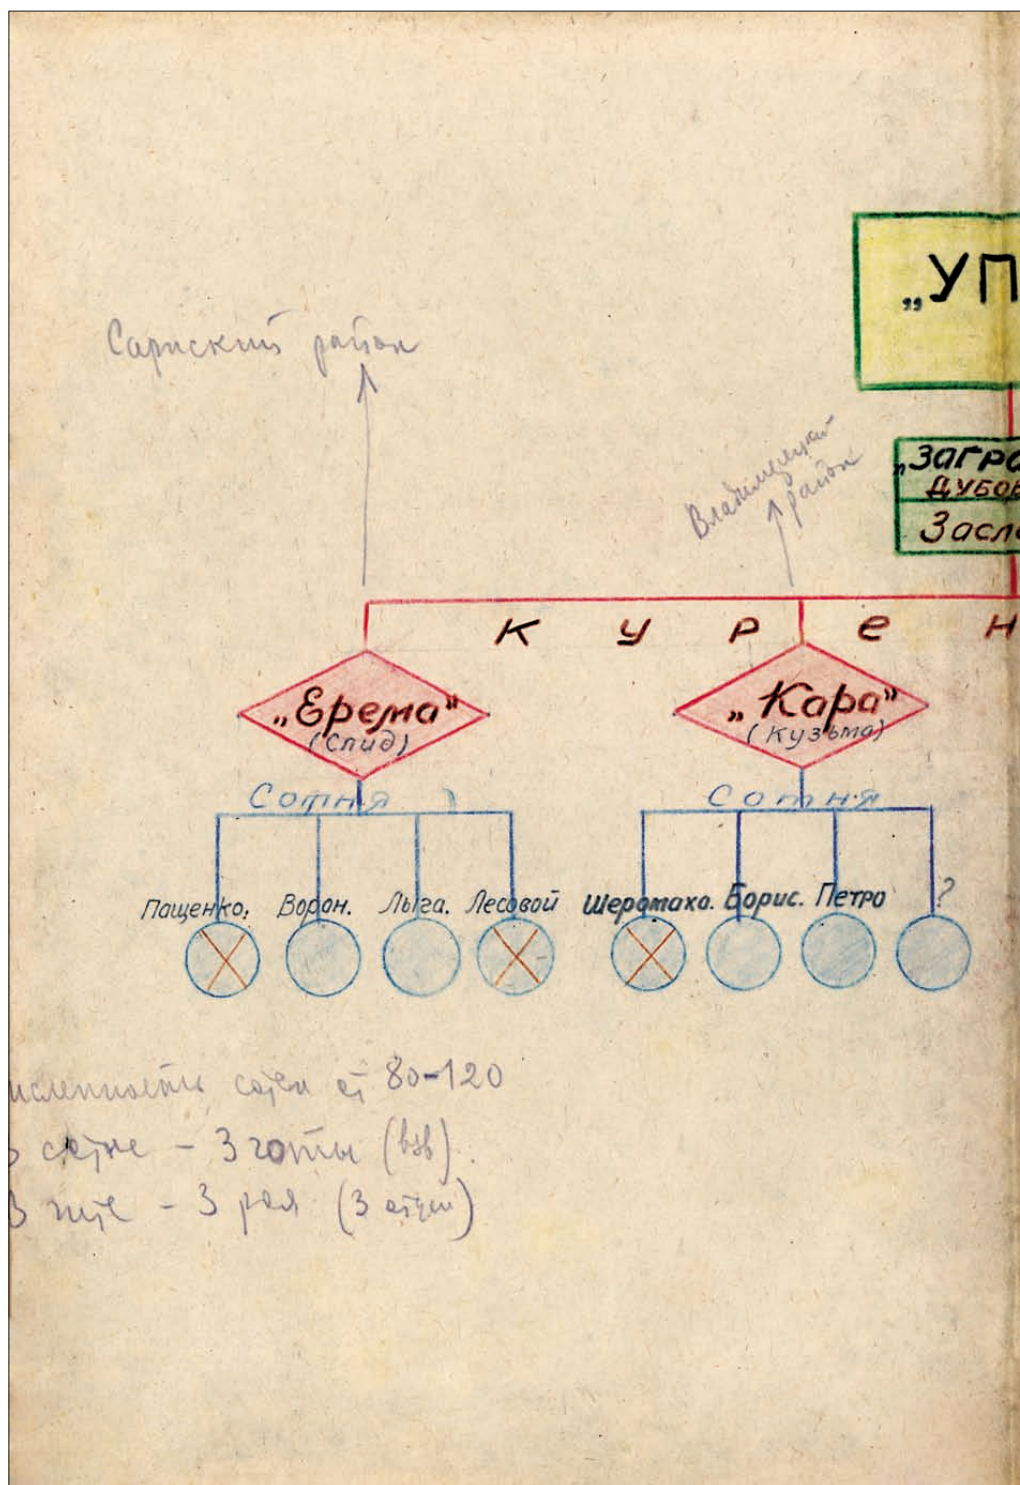 „УП
Сарнский район
Владимерецкий
район
„Загра
Дубов
Засла
К у р е н
„Ерема“
(Слид)
„Кара“
(Кузьма)
Сотня
Сотня
Пащенко. Ворон. Лыга. Лесовой Шеромаха. Борис. Петро ?
исленность сотен от 80-120
сотне - 3 чоты (взв).
В чоте - 3 роя (3 отдел)